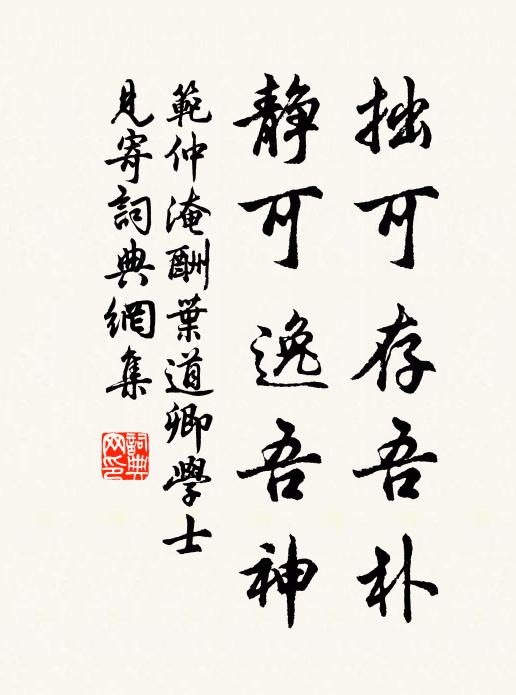 拙可存吾朴
静可逸吾神
範仲淹酬葉道卿學士
見寄詞典網集
詞典
网印